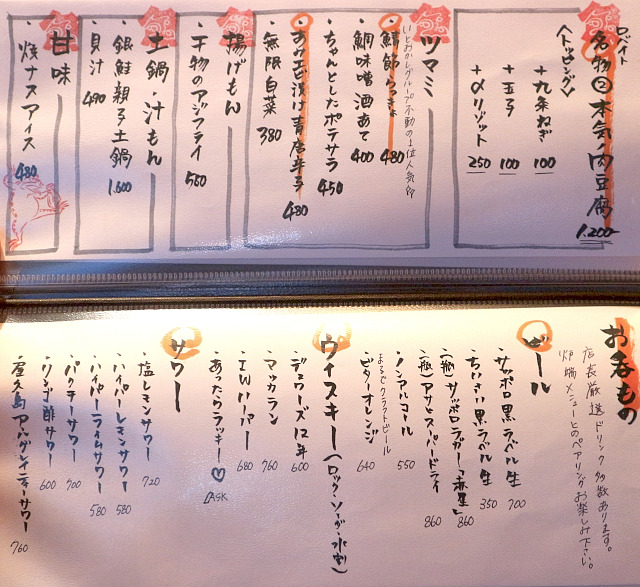 ロバイト
名物②本気ノ肉豆腐 1.200-
〈トッピング〉
+九条ねぎ 100
+玉子 100
+〆リゾット 250
ツマミ
いとおかしグループ不動の1位人気的
・鯖節らっきょ 480
・鯛味噌酒あて 400
・ちゃんとしたポテサラ 450
480
・無限白菜 380
揚げもん
・干物のアジフライ 560
土鍋・汁もん
・銀鮭親子土鍋 1.600
・貝汁 490
甘味
・焼ナスアイス 480
お呑もの
店長厳選ドリンク多数あります。
炉端メニューとのペアリングお楽しみ下さい。
ビール
・サッポロ黒ラベル生 700
・ちいさい黒ラベル生 350
・(瓶)サッポロラガー「赤星」 860
・(瓶)アサヒスーパードライ 860
・ノンアルコール 550
まるでクラフトビール
・ビターオレンジ 640
ウイスキー(ロック・ソーダ・水割)
・デュワーズ12年 600
・マッカラン 760
・I.W.ハーパー 680
・あったらラッキー♡ ASK
サワー
・塩レモンサワー 720
・ハイパーレモンサワー 580
・ハイパーライムサワー 580
・パクチーサワー 700
・リンゴ酢サワー 600
・屋久島アールグレイティーサワー 760